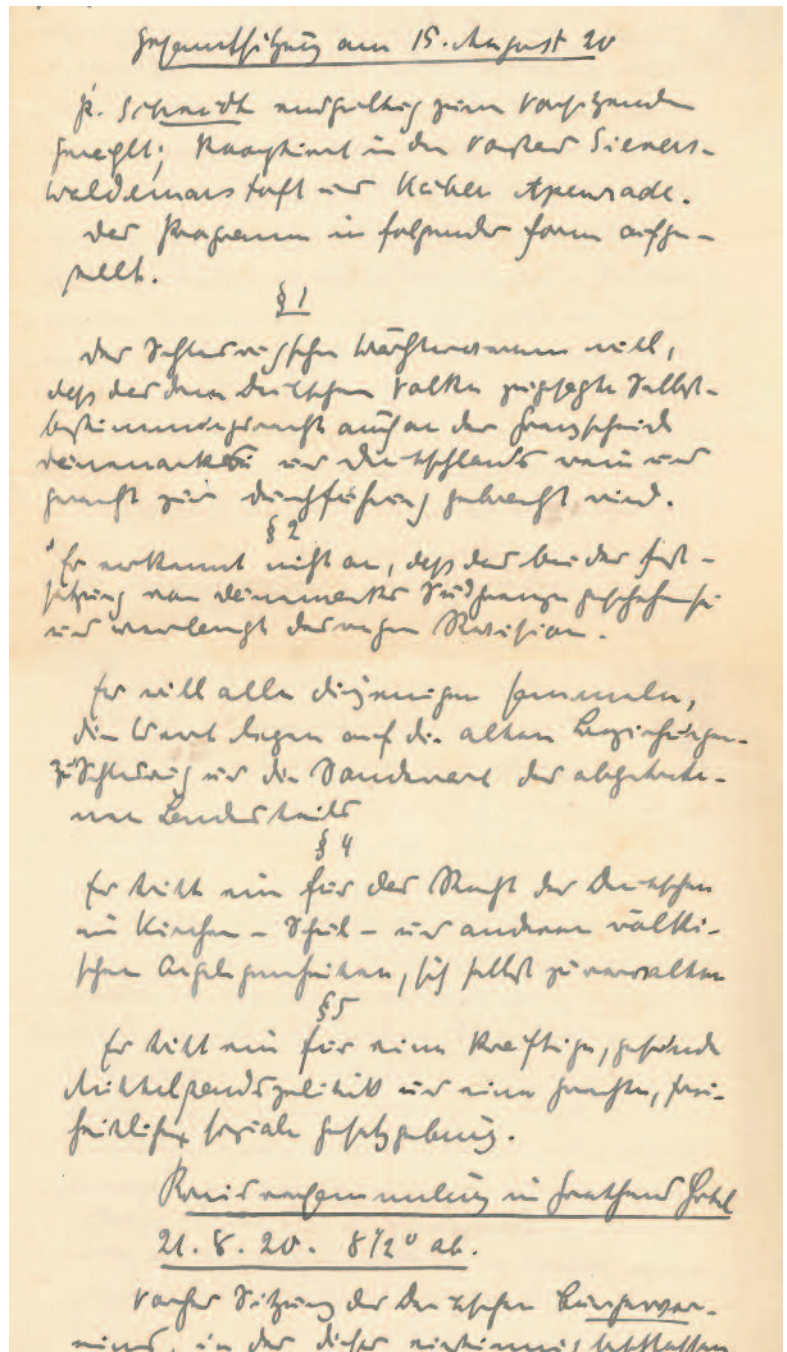 Gesamtsitzung am 15. August 20
P. Schmidt endgültig zum Vorsitzenden
gewählt; kooptiert in den Vorstand Sievers-
Waldemarstoft und Kähler Apenrade.
Das Programm in folgender Form aufge-
stellt.
§ 1
Der Schleswigsche Wählerverein will,
daß das dem Deutschen Volke zugesagte Selbst-
bestimmungsrecht auch an der Grenzscheide
Dänemarks und Deutschlands rein und
gerecht zur Durchführung gebracht wird.
§ 2
Er erkennt nicht an, daß das bei der Fest-
setzung von Dänemarks Südgrenze geschehen sei
und verlangt deswegen Revision.
Er will alle diejenigen sammeln,
die Wert legen auf die alten Beziehungen
zu Schleswig und die Sonderart des abgetrete-
nen Landesteils
§ 4
Er tritt ein für das Recht der Deutschen
in Kirchen- Schul- und anderen völki-
schen Angelegenheiten, sich selbst zu verwalten
§ 5
Er tritt ein für eine kräftige, gesunde
Mittelstandspolitik und eine gerechte, frei-
heitliche soziale Gesetzgebung.
Kreisversammlung in Hotel
21. 8. 20. 8 1/2 ° ab.
Vorher Sitzung des Deutschen Bürgerver-
eins, in der dieser einstimmig